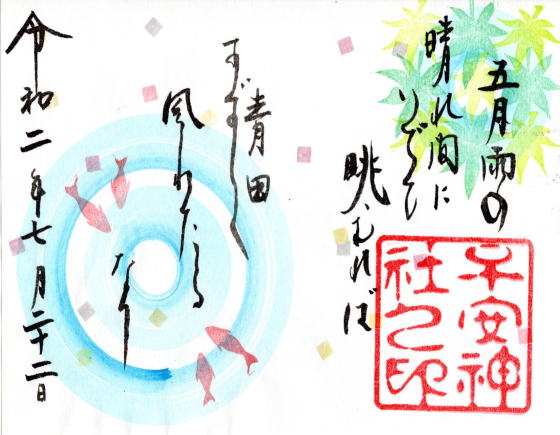 五月雨の
晴れ間に
いでて
眺むれば
青田
すずしく
風わたる
なり
令和二年七月二十二日
子安神
社之印